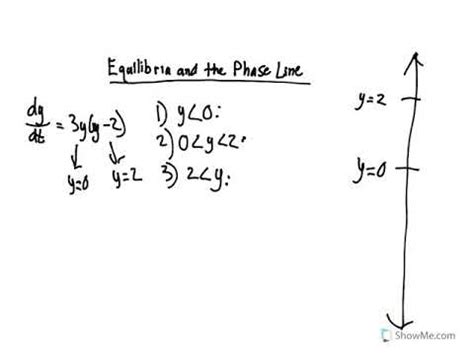 Equilibria and the Phase Line
dy/dt = 3y(y-2)
y=0 y=2
1) y<0:
2) 0<y<2:
3) 2<y:
y=2
y=0
ShowMe.com